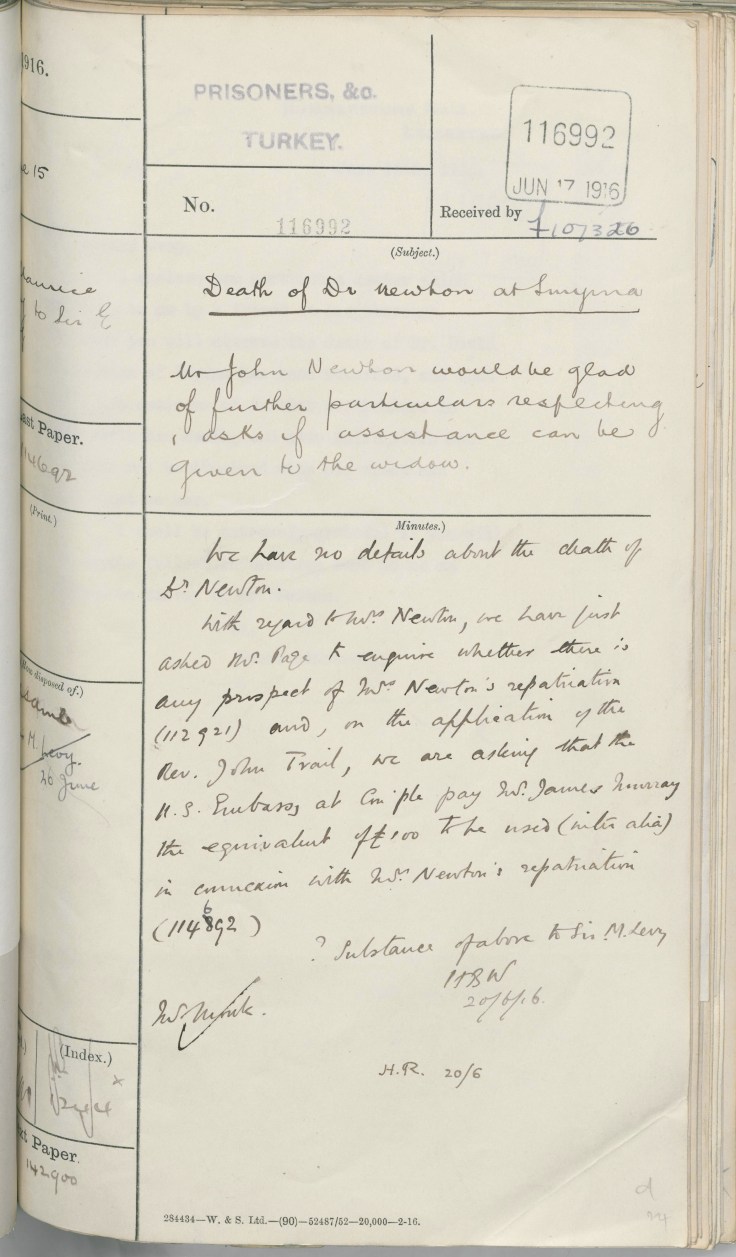 1916.
PRISONERS, &c.
TURKEY.
116992
JUN 17 1916
15
No.
116992
Received by
f 107326
(Subject.)
Death of Dr Newton at Smyrna
to Sir E
Mr John Newton would be glad
of further particulars respecting
, asks if assistance can be
given to the widow.
ast Paper.
(Print.)
(Minutes.)
We have no details about the death of
Dr. Newton.
With regard to Mrs Newton, we have just
asked Mr. Page to enquire whether there is
any prospect of Mrs Newton's repatriation
(112921) and, on the application of the
Rev. John Trail, we are asking that the
U.S. Embassy at Con'ple pay Mr. James Murray
the equivalent of £100 to be used (inter alia)
in connexion with Mrs. Newton's repatriation
(114692)
? Substance of above to Sir. M. Levy
HBW
20/6/16.
H.R. 20/6
disposed of.)
M. Levy.
26 June
(Index.)
xt Paper.
142900
284434—W. & S. Ltd.—(90)—52487/52—20,000—2-16.